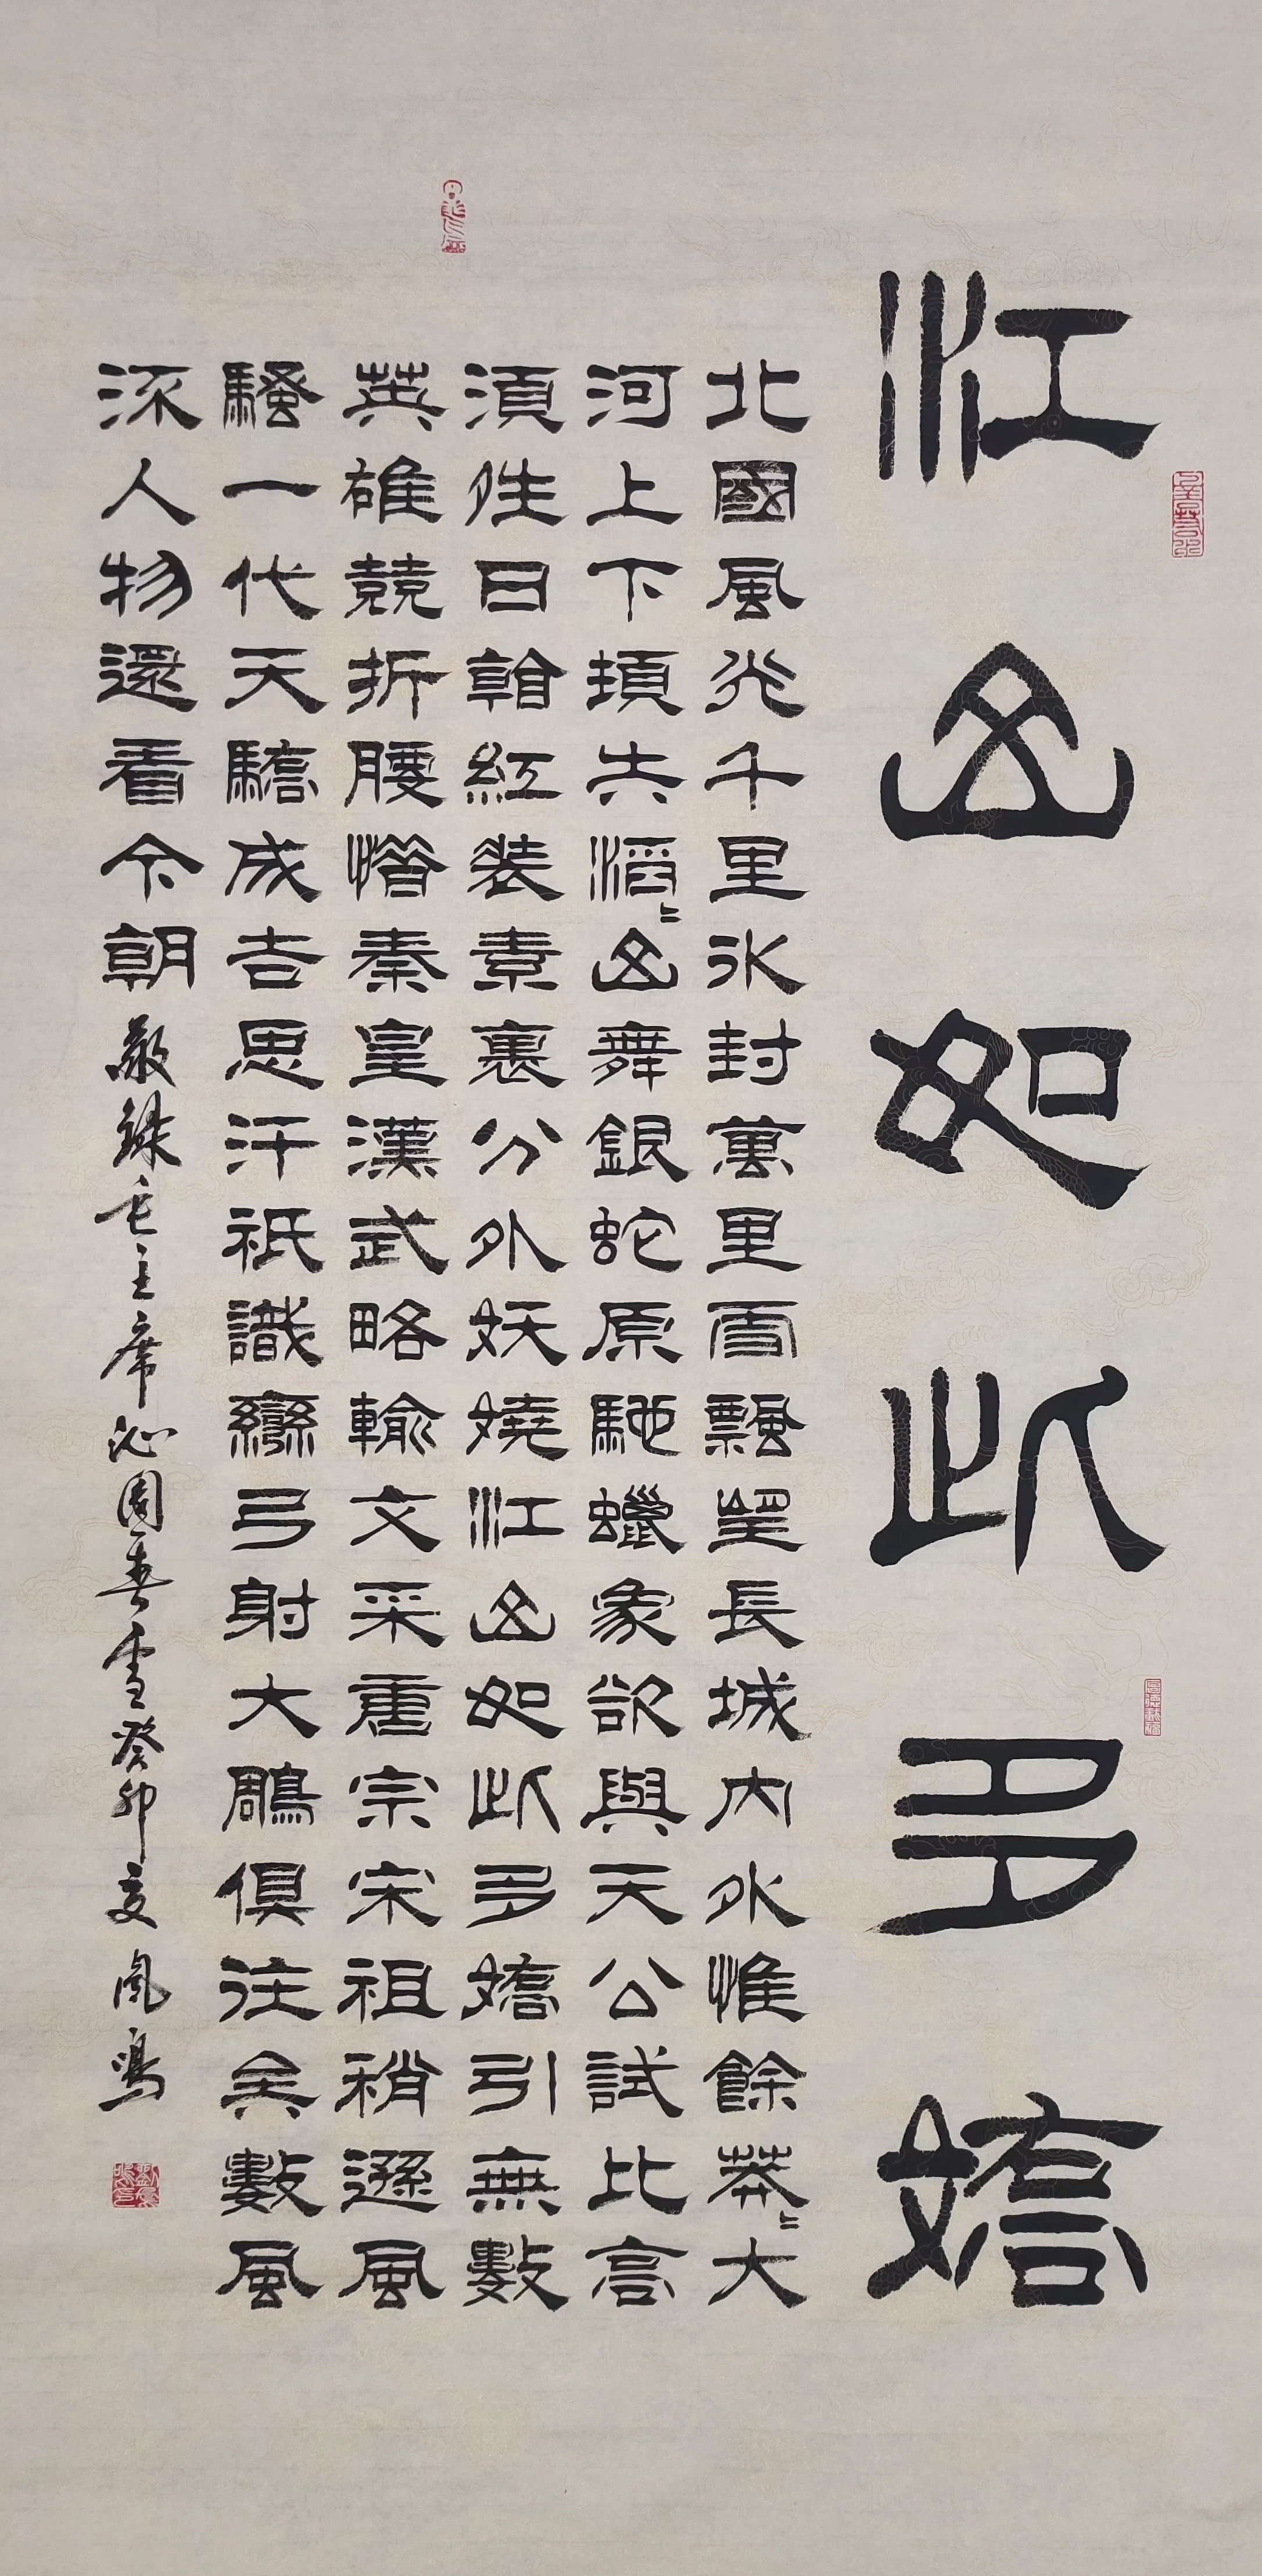 江山如此多嬌
北國風光千里冰封萬里雪飄望長城內外惟餘莽〻大
河上下頓失滔〻山舞銀蛇原馳蠟象欲與天公試比高
須晴日看紅裝素裹分外妖嬈江山如此多嬌引無數
英雄競折腰惜秦皇漢武略輸文采唐宗宋祖稍遜風
騷一代天驕成吉思汗祇識彎弓射大鵰俱往矣數風
流人物還看今朝
敬錄毛主席沁園春雪癸卯夏鳳鳴